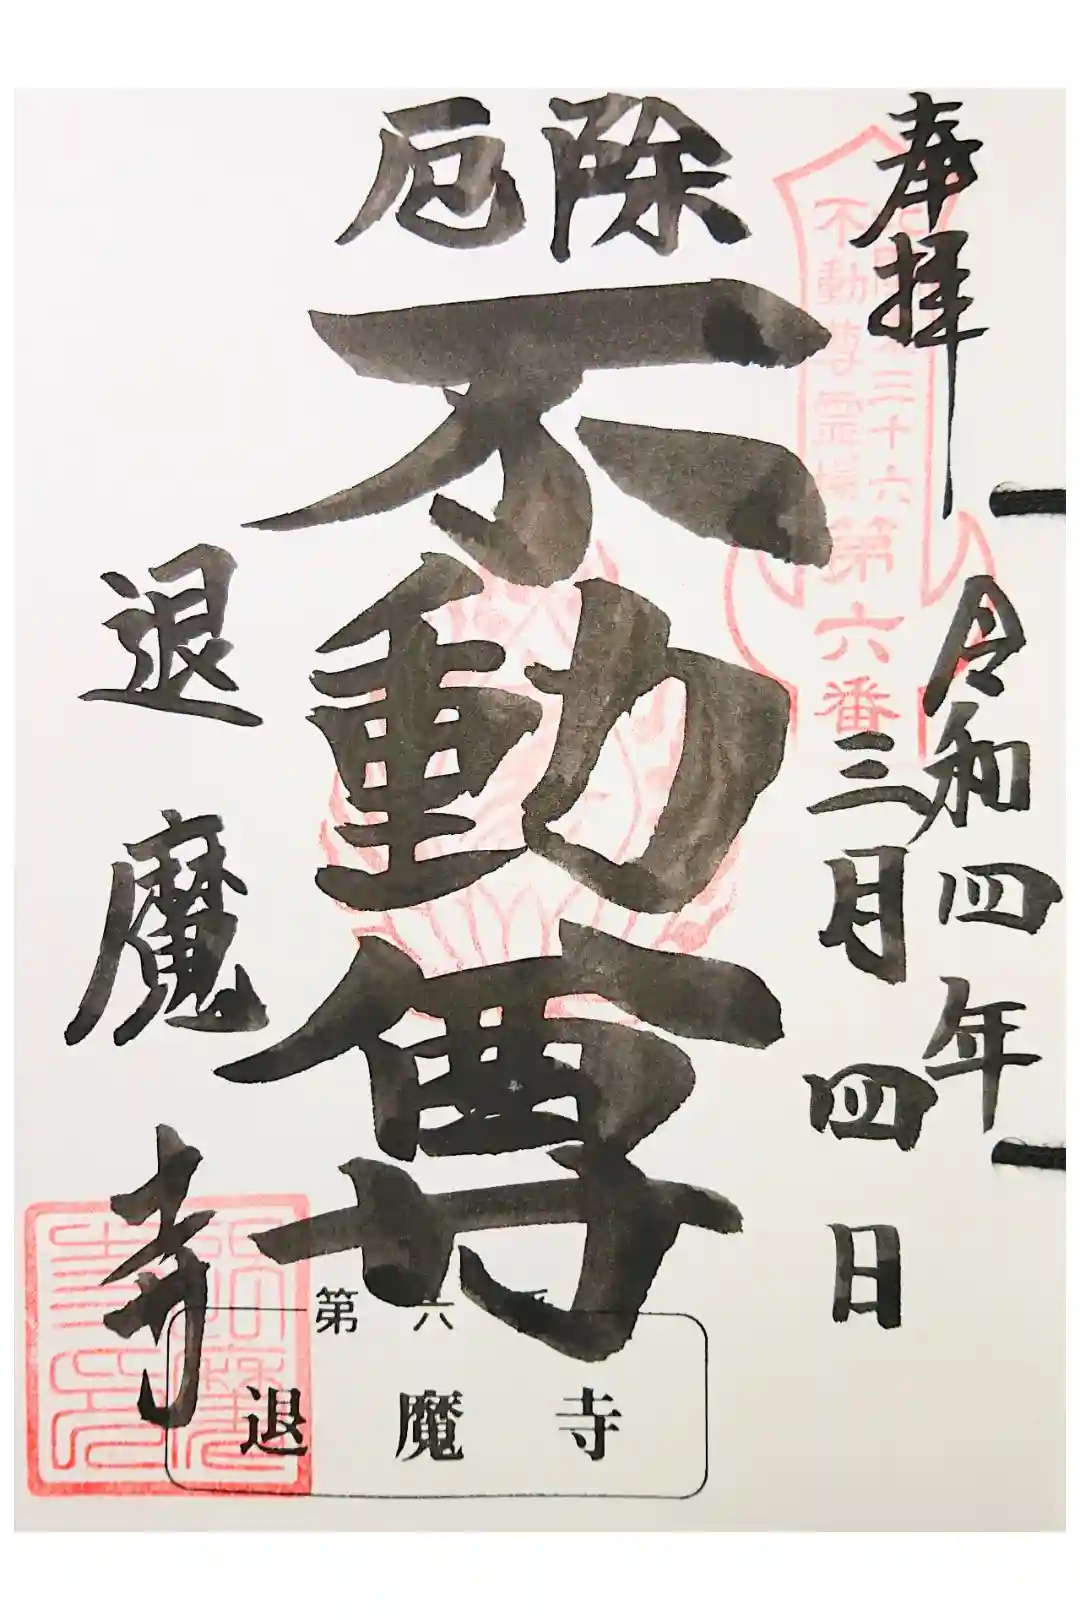 奉拝
令和四年
三月四日
三十六
不動尊霊場第六番
厄除
不動尊
退魔寺
第六番
退魔寺